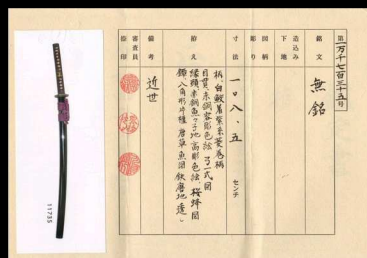 第一万千七百三十五号
銘文 無銘
造込み
下地
図柄
彫り
寸法 一〇八、五 センチ
拵え 柄、白鮫着紫糸菱巻柄
目貫、赤銅容彫色絵 弓一式図
縁頭、赤銅魚々子地高彫色絵、桜蜂図
鐔、八角形片櫃 唐草魚図 鉄磨地透。
備考 近世
審査員
捺印
11735